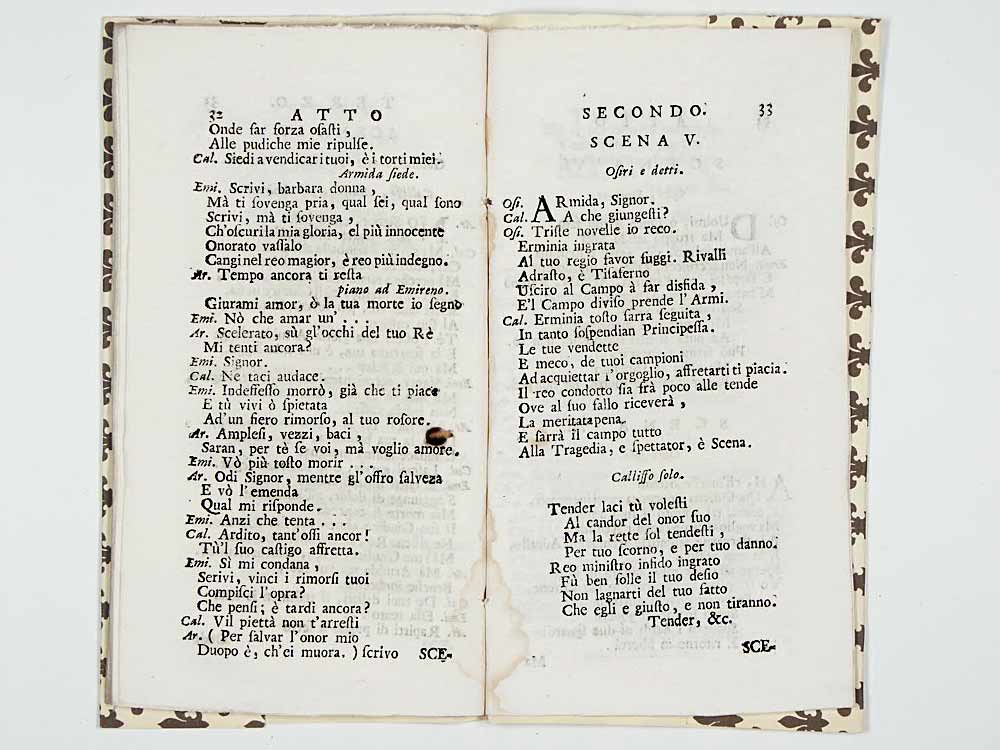 32 ATTO
Onde far forza osasti,
Alle pudiche mie ripulse.
Cal. Siedi a vendicar i tuoi, è i torti miei.
Armida siede.
Emi. Scrivi, barbara donna,
Mà ti sovenga pria, qual sei, qual sono
Scrivi, mà ti sovenga,
Ch'oscuri la mia gloria, el più innocente
Onorato vassalo
Cangi nel reo magior, è reo più indegno.
Ar. Tempo ancora ti resta
piano ad Emireno.
Giurami amor, ò la tua morte io segno
Emi. Nò che amar un' . . .
Ar. Scelerato, sù gl'occhi del tuo Rè
Mi tenti ancora?
Emi. Signor.
Cal. Ne taci audace.
Emi. Indefesso morrò, già che ti piace
E tù vivi ò spietata
Ad'un fiero rimorso, al tuo rosore.
Ar. Amplesi, vezzi, baci,
Saran, per tè se voi, mà voglio amore.
Emi. Vò più tosto morir . . .
Ar. Odi Signor, mentre gl'offro salveza
E vò l'emenda
Qual mi risponde.
Emi. Anzi che tenta . . .
Cal. Ardito, tant'ossi ancor!
Tù'l suo castigo affretta.
Emi. Sì mi condana,
Serivi, vinci i rimorsi tuoi
Compisci l'opra?
Che pensi; è tardi ancora?
Cal. Vil piettà non t'arresti
Ar. ( Per salvar l'onor mio
Duopo è, ch'ei muora. ) scrivo SCE-
SECONDO. 33
SCENA V.
Osiri e detti.
Osi. ARmida, Signor.
Cal. A che giungesti?
Osi. Triste novelle io reco.
Erminia ingrata
Al tuo regio favor fuggi. Rivalli
Adrasto, è Tisaferno
Usciro al Campo à far disfida,
E'l Campo diviso prende l'Armi.
Cal. Erminia tosto sarra seguita,
In tanto sospendian Principessa.
Le tue vendette
E meco, de tuoi campioni
Ad acquiettar l'orgoglio, affretarti ti piacia.
Il reo condotto sia frà poco alle tende
Ove al suo fallo riceverà,
La meritata pena.
E sarrà il campo tutto
Alla Tragedia, e spettator, è Scena.
Callisso solo.
Tender laci tù volesti
Al candor del onor suo
Ma la rette sol tendesti,
Per tuo scorno, e per tuo danno.
Reo ministro infido ingrato
Fù ben folle il tuo desio
Non lagnarti del tuo fatto
Che egli e giusto, e non tiranno.
Tender, &c.
SCE-